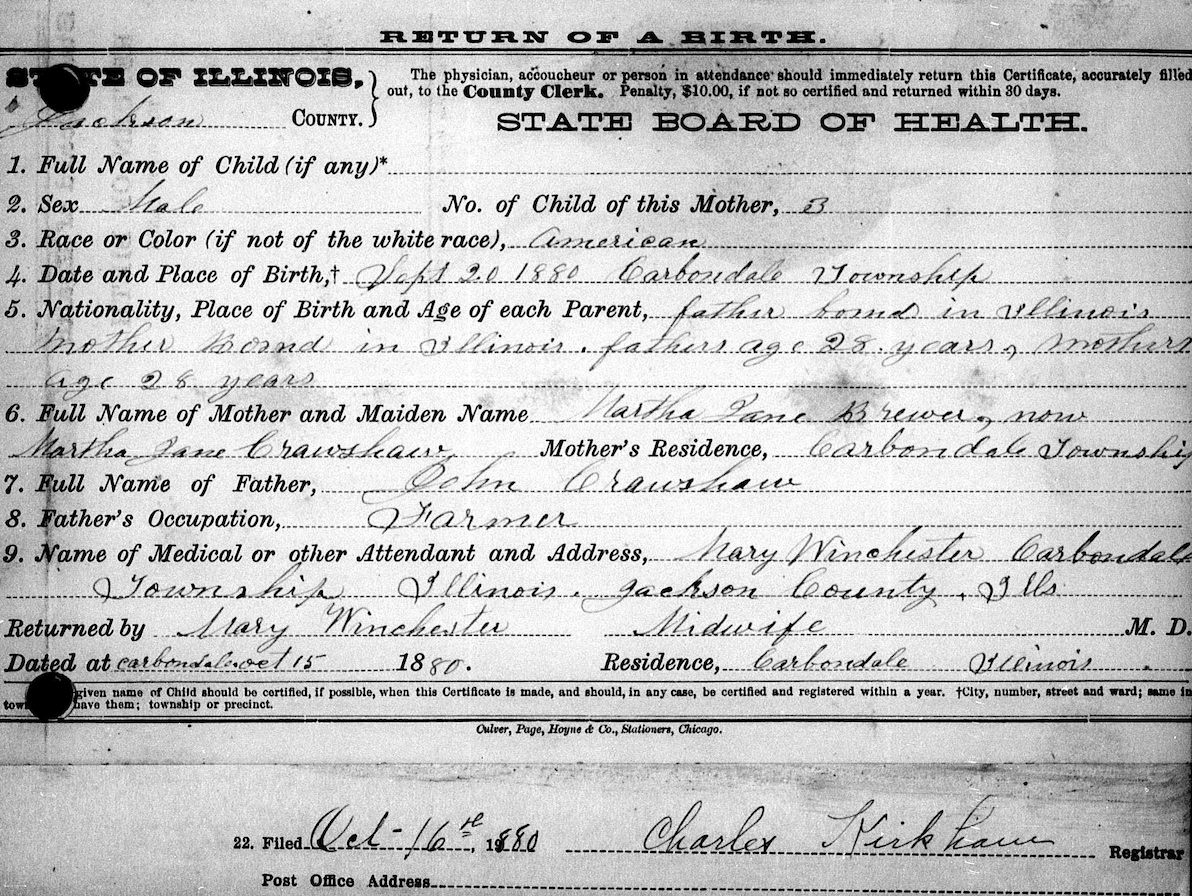 RETURN OF A BIRTH.
STATE OF ILLINOIS,
The physician, accoucheur or person in attendance should immediately return this Certificate, accurately filled
out, to the County Clerk. Penalty, $10.00, if not so certified and returned within 30 days.
Jackson COUNTY.
STATE BOARD OF HEALTH.
1. Full Name of Child (if any)*
2. Sex Male No. of Child of this Mother, 3
3. Race or Color (if not of the white race), American
4. Date and Place of Birth,† Sept 20 1880 Carbondale Township
5. Nationality, Place of Birth and Age of each Parent, father bornd in Illinois
Mother Bornd in Illinois. fathers age 28 years, Mothers
age 28 years
6. Full Name of Mother and Maiden Name Martha Jane Brewer, now
Martha Jane Crawshaw, Mother's Residence, Carbondale Township
7. Full Name of Father, John Crawshaw
8. Father's Occupation, Farmer
9. Name of Medical or other Attendant and Address, Mary Winchester Carbondale
Township Illinois. Jackson County, Ills
Returned by Mary Winchester Midwife M. D.
Dated at Carbondale oct 15 1880. Residence, Carbondale Illinois.
given name of Child should be certified, if possible, when this Certificate is made, and should, in any case, be certified and registered within a year. †City, number, street and ward; same in
have them; township or precinct.
Culver, Page, Hoyne & Co., Stationers, Chicago.
22. Filed Oct 16th, 1880 Charles Kirkham Registrar
Post Office Address